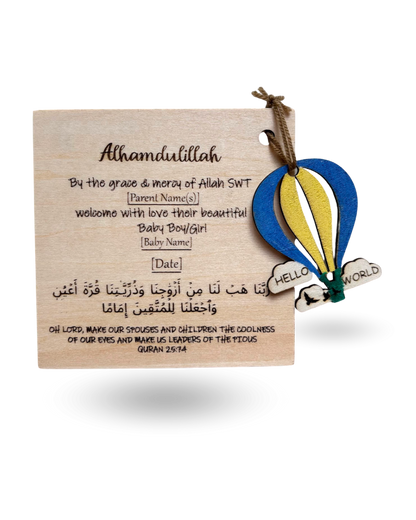 Alhamdulillah
By the grace & mercy of Allah SWT
[Parent Name(s)]
welcome with love their beautiful
Baby Boy/Girl
[Baby Name]
[Date]
رَبَّنَا هَبْ لَنَا مِنْ أَزْوَٰجِنَا وَذُرِّيَّـٰتِنَا قُرَّةَ أَعْيُنٍ
وَٱجْعَلْنَا لِلْمُتَّقِينَ إِمَامًا
OH LORD, MAKE OUR SPOUSES AND CHILDREN THE COOLNESS
OF OUR EYES AND MAKE US LEADERS OF THE PIOUS
QURAN 25:74
HELLO
WORLD